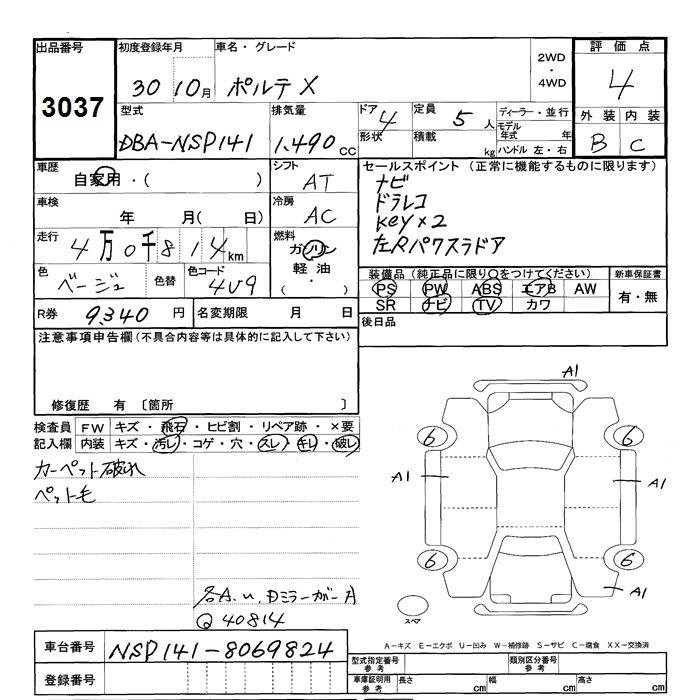 出品番号
3037
初度登録年月
30 10月
車名・グレード
ポルテ X
2WD
・
4WD
評価点
4
外装 内装
B C
型式
DBA-NSP141
排気量
1,490 CC
ドア 4
形状
定員 5 人
積載 kg
ディーラー・並行
モデル年式 年
ハンドル 左・右
車歴
自家用・( )
シフト
AT
車検
年 月( 日)
冷房
AC
走行
4万0千814km
燃料
ガソリン
軽油
( ・ )
色
ベージュ
色替
色コード
4U9
セールスポイント (正常に機能するものに限ります)
ナビ
ドラレコ
Key×2
左Rパワスラドア
装備品 (純正品に限り○をつけてください)
PS PW ABS エアB AW
SR ナビ TV カワ
新車保証書
有・無
R券 9,340 円
名変期限 月 日
後日品
注意事項申告欄(不具合内容等は具体的に記入して下さい)
修復歴 有 〔箇所 〕
検査員 FW キズ・飛石・ヒビ割・リペア跡・×要
記入欄 内装 キズ・汚レ・コゲ・穴・スレ・キレ・破レ
カーペット破れ
ペット毛
各A.U. DミラーガーA
Q 40814
A1
6 6
A1 A1
6 6
A1
スペア
車台番号 NSP141-8069824
登録番号
A-キズ E-エクボ U-凹み W-補修跡 S-サビ C-腐食 XX-交換済
型式指定番号 参考
類別区分番号 参考
車庫証明用 参考
長さ cm 幅 cm 高さ cm